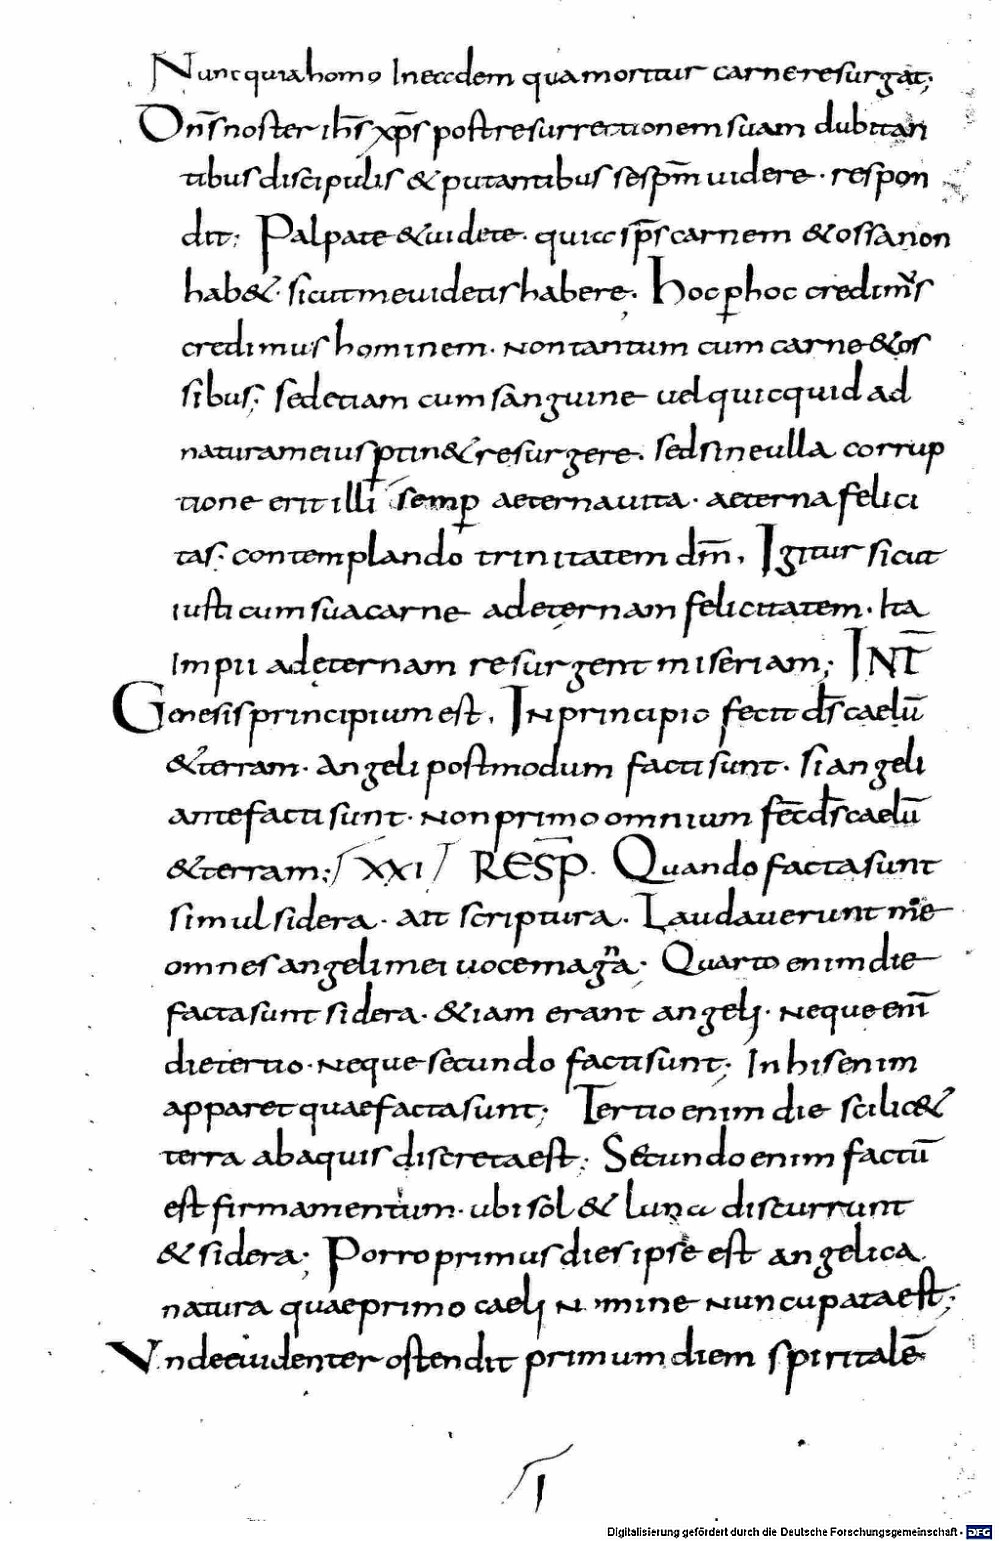 Nunc quia homo In eadem qua moritur carne resurgat;
Dn̄s noster ih̄s xp̄s post resurrectionem suam dubitan
tibus discipulis & putantibus se sp̄m uidere · respon
dit; Palpate & uidete · quia sp̄s carnem & ossa non
hab& · sicut me uidetis habere; hoc ꝑ hoc credim̄s
credimus hominem · non tantum cum carne & os
sibus; sed etiam cum sanguine uel quicquid ad
naturam eius ꝑtin& resurgere. sed sine ulla corrup
tione erit illi semꝑ aeterna uita · aeterna felici
tas; contemplando trinitatem dm̄, Igitur sicut
iusti cum sua carne ad eternam felicitatem · Ita
Impii ad ęternam resurgent miseriam; INT̄
Genesis principium est, In principio fecit d̄s caelū
& terram · Angeli postmodum facti sunt · si angeli
ante facti sunt · non primo omnium fec̄ d̄s caelū
& terram; XXI RESP̄. Quando facta sunt
simul sidera · ait scriptura · Laudauerunt me
omnes angeli mei uoce magna · Quarto enim die
facta sunt sidera · & iam erant angeli · neque eni̅
die tertio · neque secundo facti sunt; In his enim
apparet quae facta sunt; Tertio enim die scilic&
terra ab aquis discreta est; Secundo enim factū
est firmamentum · ubi sol & luna discurrunt
& sidera; Porro primus dies ipse est angelica
natura quae primo caeli nomine nuncupata est;
Vnde euidenter ostendit primum diem spiritalē
Digitalisierung gefördert durch die Deutsche Forschungsgemeinschaft - DFG